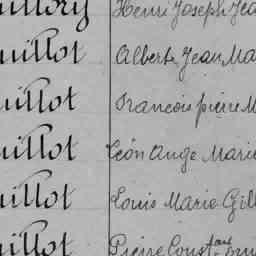 uillory Henri Joseph Jea
uillot Albert Jean Ma
uillot Francois pierre M
uillot Léon Ange Marie
uillot Louis Marie Gill
uillot Pierre Constant